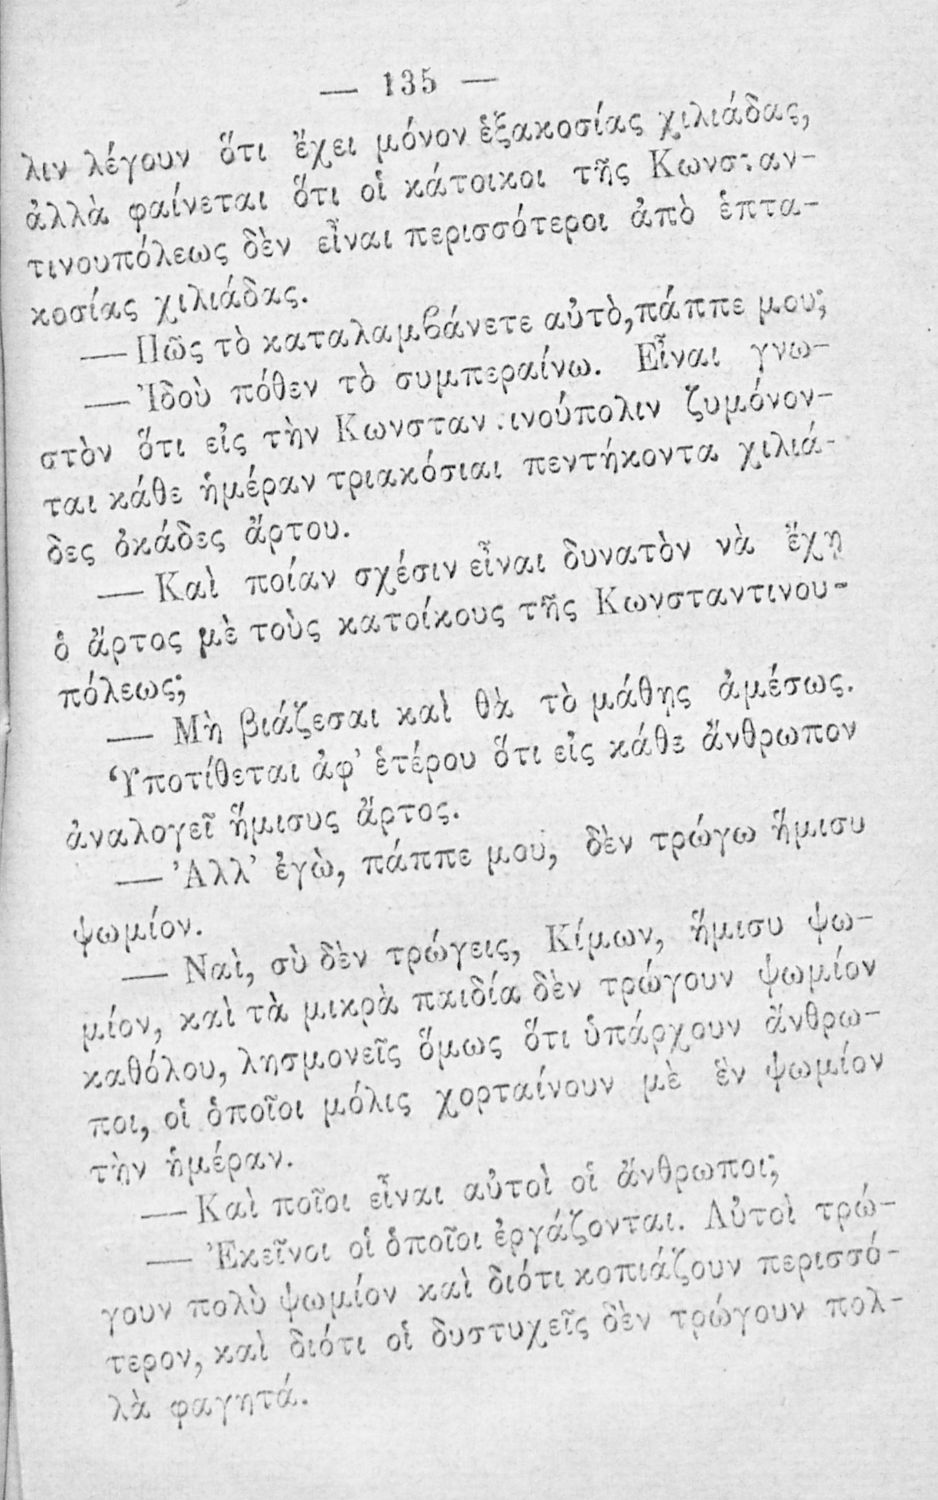 — 135 —
λιν λέγουν ὅτι ἔχει μόνον ἑξακοσίας χιλιάδας,
ἀλλὰ φαίνεται ὅτι οἱ κάτοικοι τῆς Κωνσταν-
τινουπόλεως δὲν εἶναι περισσότεροι ἀπὸ ἑπτα-
κοσίας χιλιάδας.
— Πῶς τὸ καταλαμβάνετε αὐτὸ, πάππε μου;
— Ἰδοὺ πόθεν τὸ συμπεραίνω. Εἶναι γνω-
στὸν ὅτι εἰς τὴν Κωνσταντινούπολιν ζυμόνον-
ται κάθε ἡμέραν τριακόσιαι πεντήκοντα χιλιά-
δες ὀκάδες ἄρτου.
— Καὶ ποίαν σχέσιν εἶναι δυνατὸν νὰ ἔχῃ
ὁ ἄρτος μὲ τοὺς κατοίκους τῆς Κωνσταντινου-
πόλεως;
— Μὴ βιάζεσαι καὶ θὰ τὸ μάθῃς ἀμέσως.
Ὑποτίθεται ἀφ' ἑτέρου ὅτι εἰς κάθε ἄνθρωπον
ἀναλογεῖ ἥμισυς ἄρτος.
— Ἀλλ' ἐγὼ, πάππε μου, δὲν τρώγω ἥμισυ
ψωμίον.
— Ναὶ, σὺ δὲν τρώγεις, Κίμων, ἥμισυ ψω-
μίον, καὶ τὰ μικρὰ παιδία δὲν τρώγουν ψωμίον
καθόλου, λησμονεῖς ὅμως ὅτι ὑπάρχουν ἄνθρω-
ποι, οἱ ὁποῖοι μόλις χορταίνουν μὲ ἓν ψωμίον
τὴν ἡμέραν.
— Καὶ ποῖοι εἶναι αὐτοὶ οἱ ἄνθρωποι;
— Ἐκεῖνοι οἱ ὁποῖοι ἐργάζονται. Αὐτοὶ τρώ-
γουν πολὺ ψωμίον καὶ διότι κοπιάζουν περισσό-
τερον, καὶ διότι οἱ δυστυχεῖς δὲν τρώγουν πολ-
λὰ φαγητά.